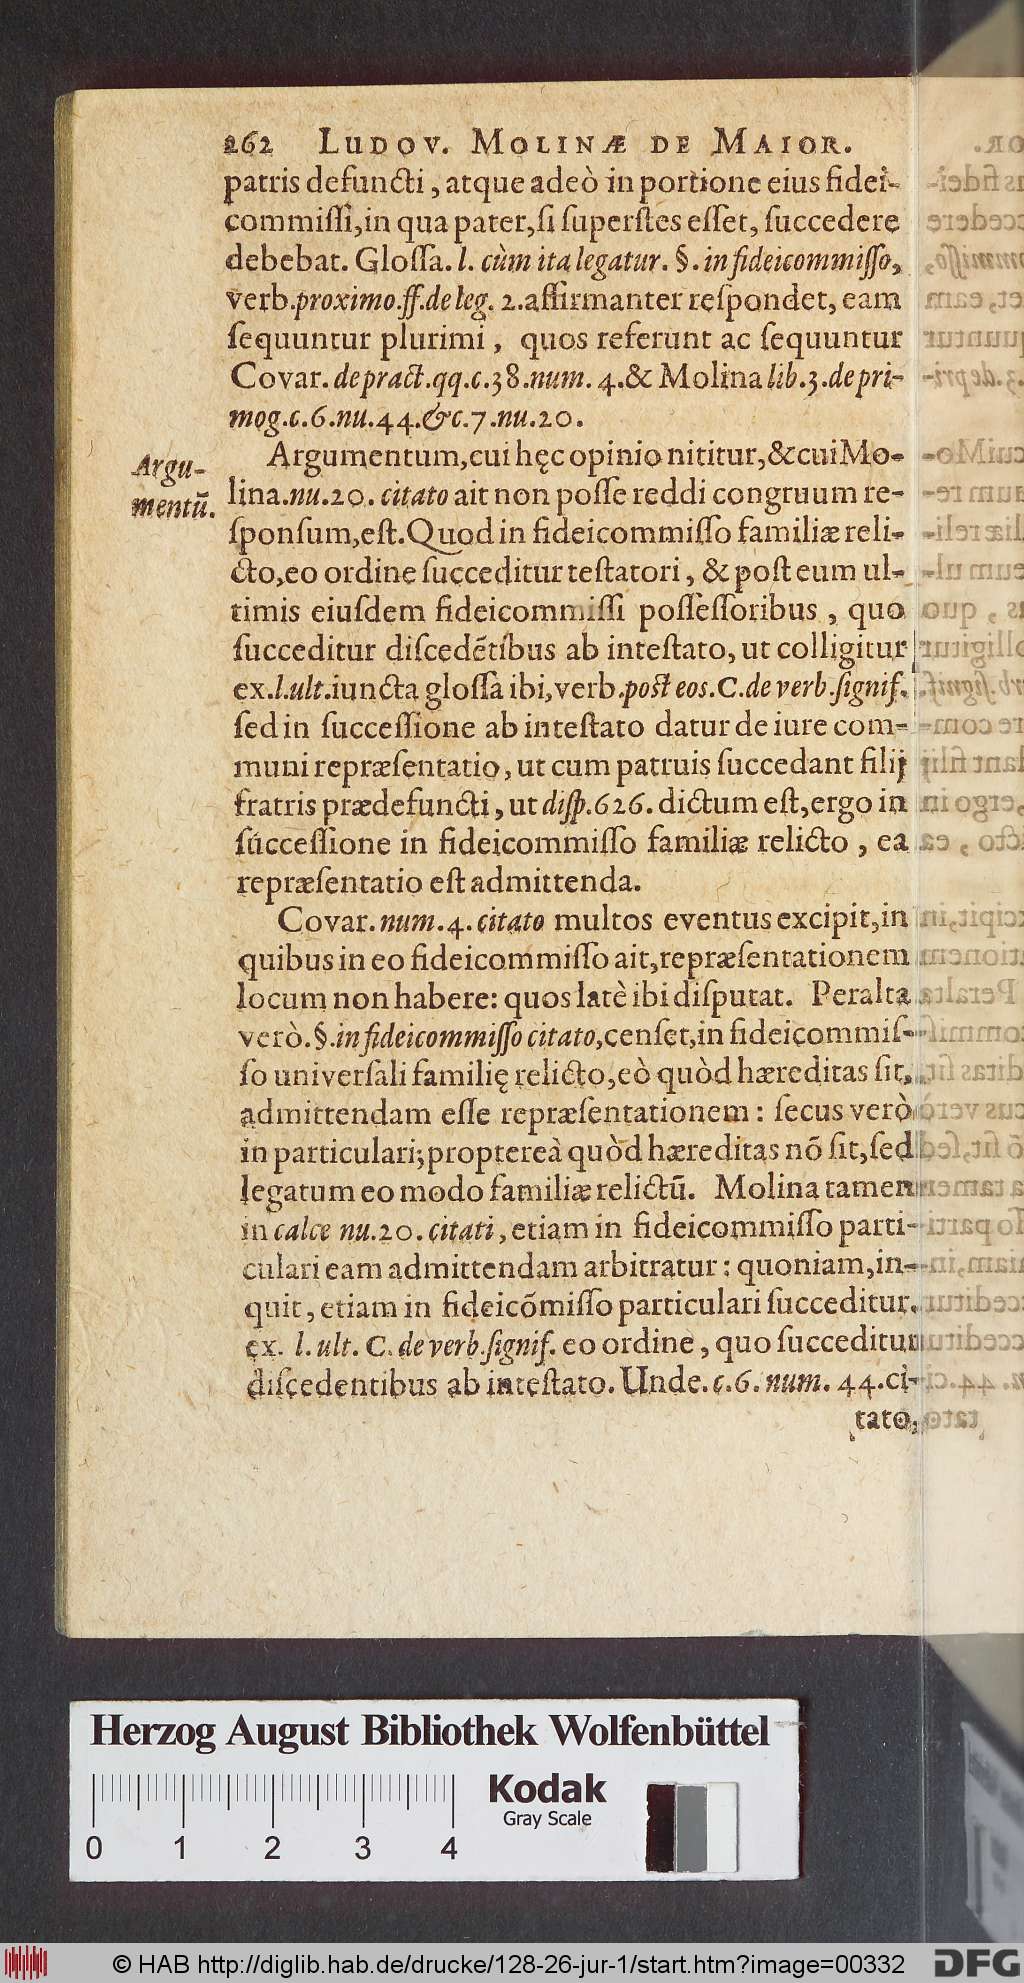 262 LUDOV. MOLINÆ DE MAIOR.
patris defuncti, atque adeò in portione eius fidei-
commissi, in qua pater, si superstes esset, succedere
debebat. Glossa. l. cùm ita legatur. §. in fideicommisso,
verb. proximo. ff. de leg. 2. affirmanter respondet, eam
sequuntur plurimi, quos referunt ac sequuntur
Covar. de pract. qq. c. 38. num. 4. & Molina lib. 3. de pri-
mog. c. 6. nu. 44. & c. 7. nu. 20.
Argu-
mentũ.
Argumentum, cui hęc opinio nititur, & cui Mo-
lina. nu. 20. citato ait non posse reddi congruum re-
sponsum, est. Quod in fideicommisso familiæ reli-
cto, eo ordine succeditur testatori, & post eum ul-
timis eiusdem fideicommissi possessoribus, quo
succeditur discedẽtibus ab intestato, ut colligitur
ex. l. ult. iuncta glossa ibi, verb. post eos. C. de verb. signif.
sed in successione ab intestato datur de iure com-
muni repræsentatio, ut cum patruis succedant filij
fratris prædefuncti, ut disp. 626. dictum est, ergo in
successione in fideicommisso familiæ relicto, ea
repræsentatio est admittenda.
Covar. num. 4. citato multos eventus excipit, in
quibus in eo fideicommisso ait, repræsentationem
locum non habere: quos latè ibi disputat. Peralta
verò. §. in fideicommisso citato, censet, in fideicommis-
so universali familię relicto, eò quòd hæreditas sit,
admittendam esse repræsentationem: secus verò
in particulari; proptereà quòd hæreditas nõ sit, sed
legatum eo modo familiæ relictũ. Molina tamen
in calce nu. 20. citati, etiam in fideicommisso parti-
culari eam admittendam arbitratur: quoniam, in-
quit, etiam in fideicõmisso particulari succeditur.
ex. l. ult. C. de verb. signif. eo ordine, quo succeditur
discedentibus ab intestato. Unde. c. 6. num. 44. ci-
tato,
Herzog August Bibliothek Wolfenbüttel
Kodak
Gray Scale
0 1 2 3 4
© HAB http://diglib.hab.de/drucke/128-26-jur-1/start.htm?image=00332
DFG